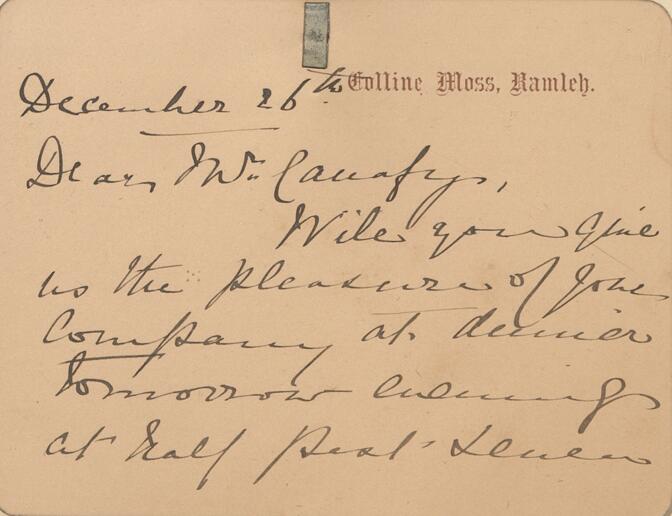 Colline Moss, Ramleh.
December 26th
Dear Mr Canafys,
Will you give
us the pleasure of your
company at dinner
tomorrow evening
at half past seven